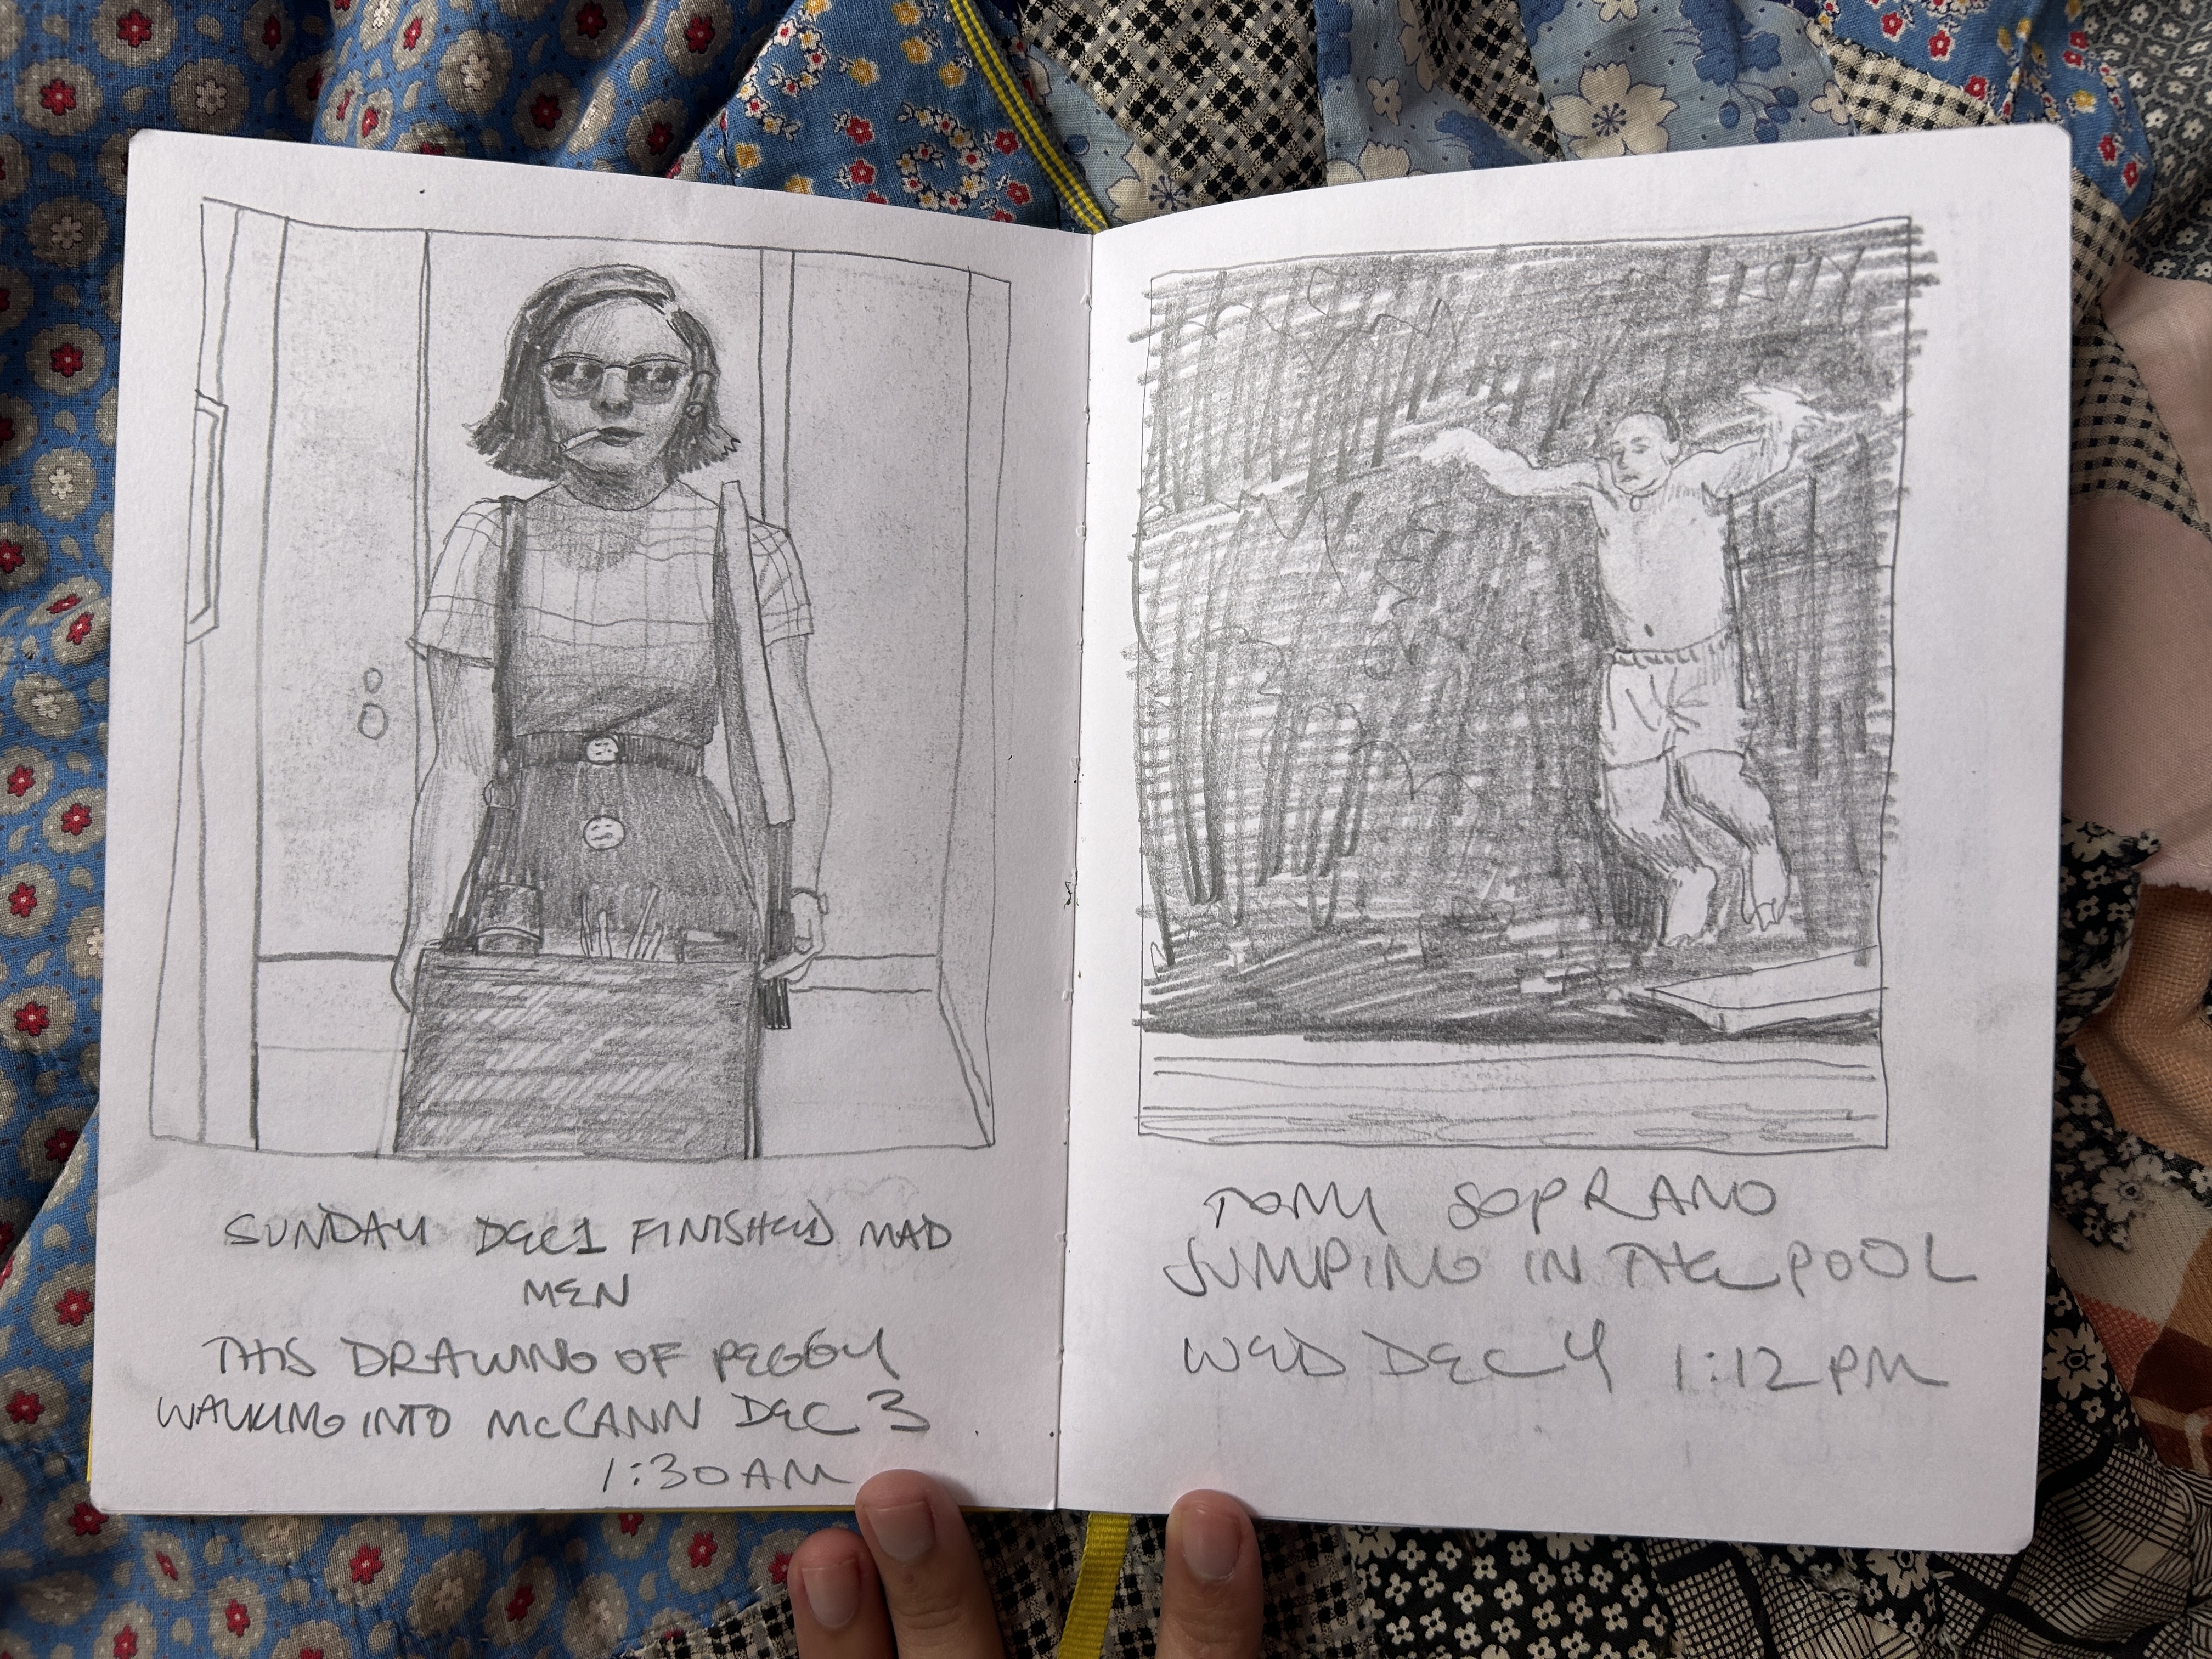 SUNDAY DEC 1 FINISHED MAD
MEN
THIS DRAWING OF PEGGY
WALKING INTO McCANN DEC 3
1:30AM
TONY SOPRANO
JUMPING IN THE POOL
WED DEC 4 1:12 PM